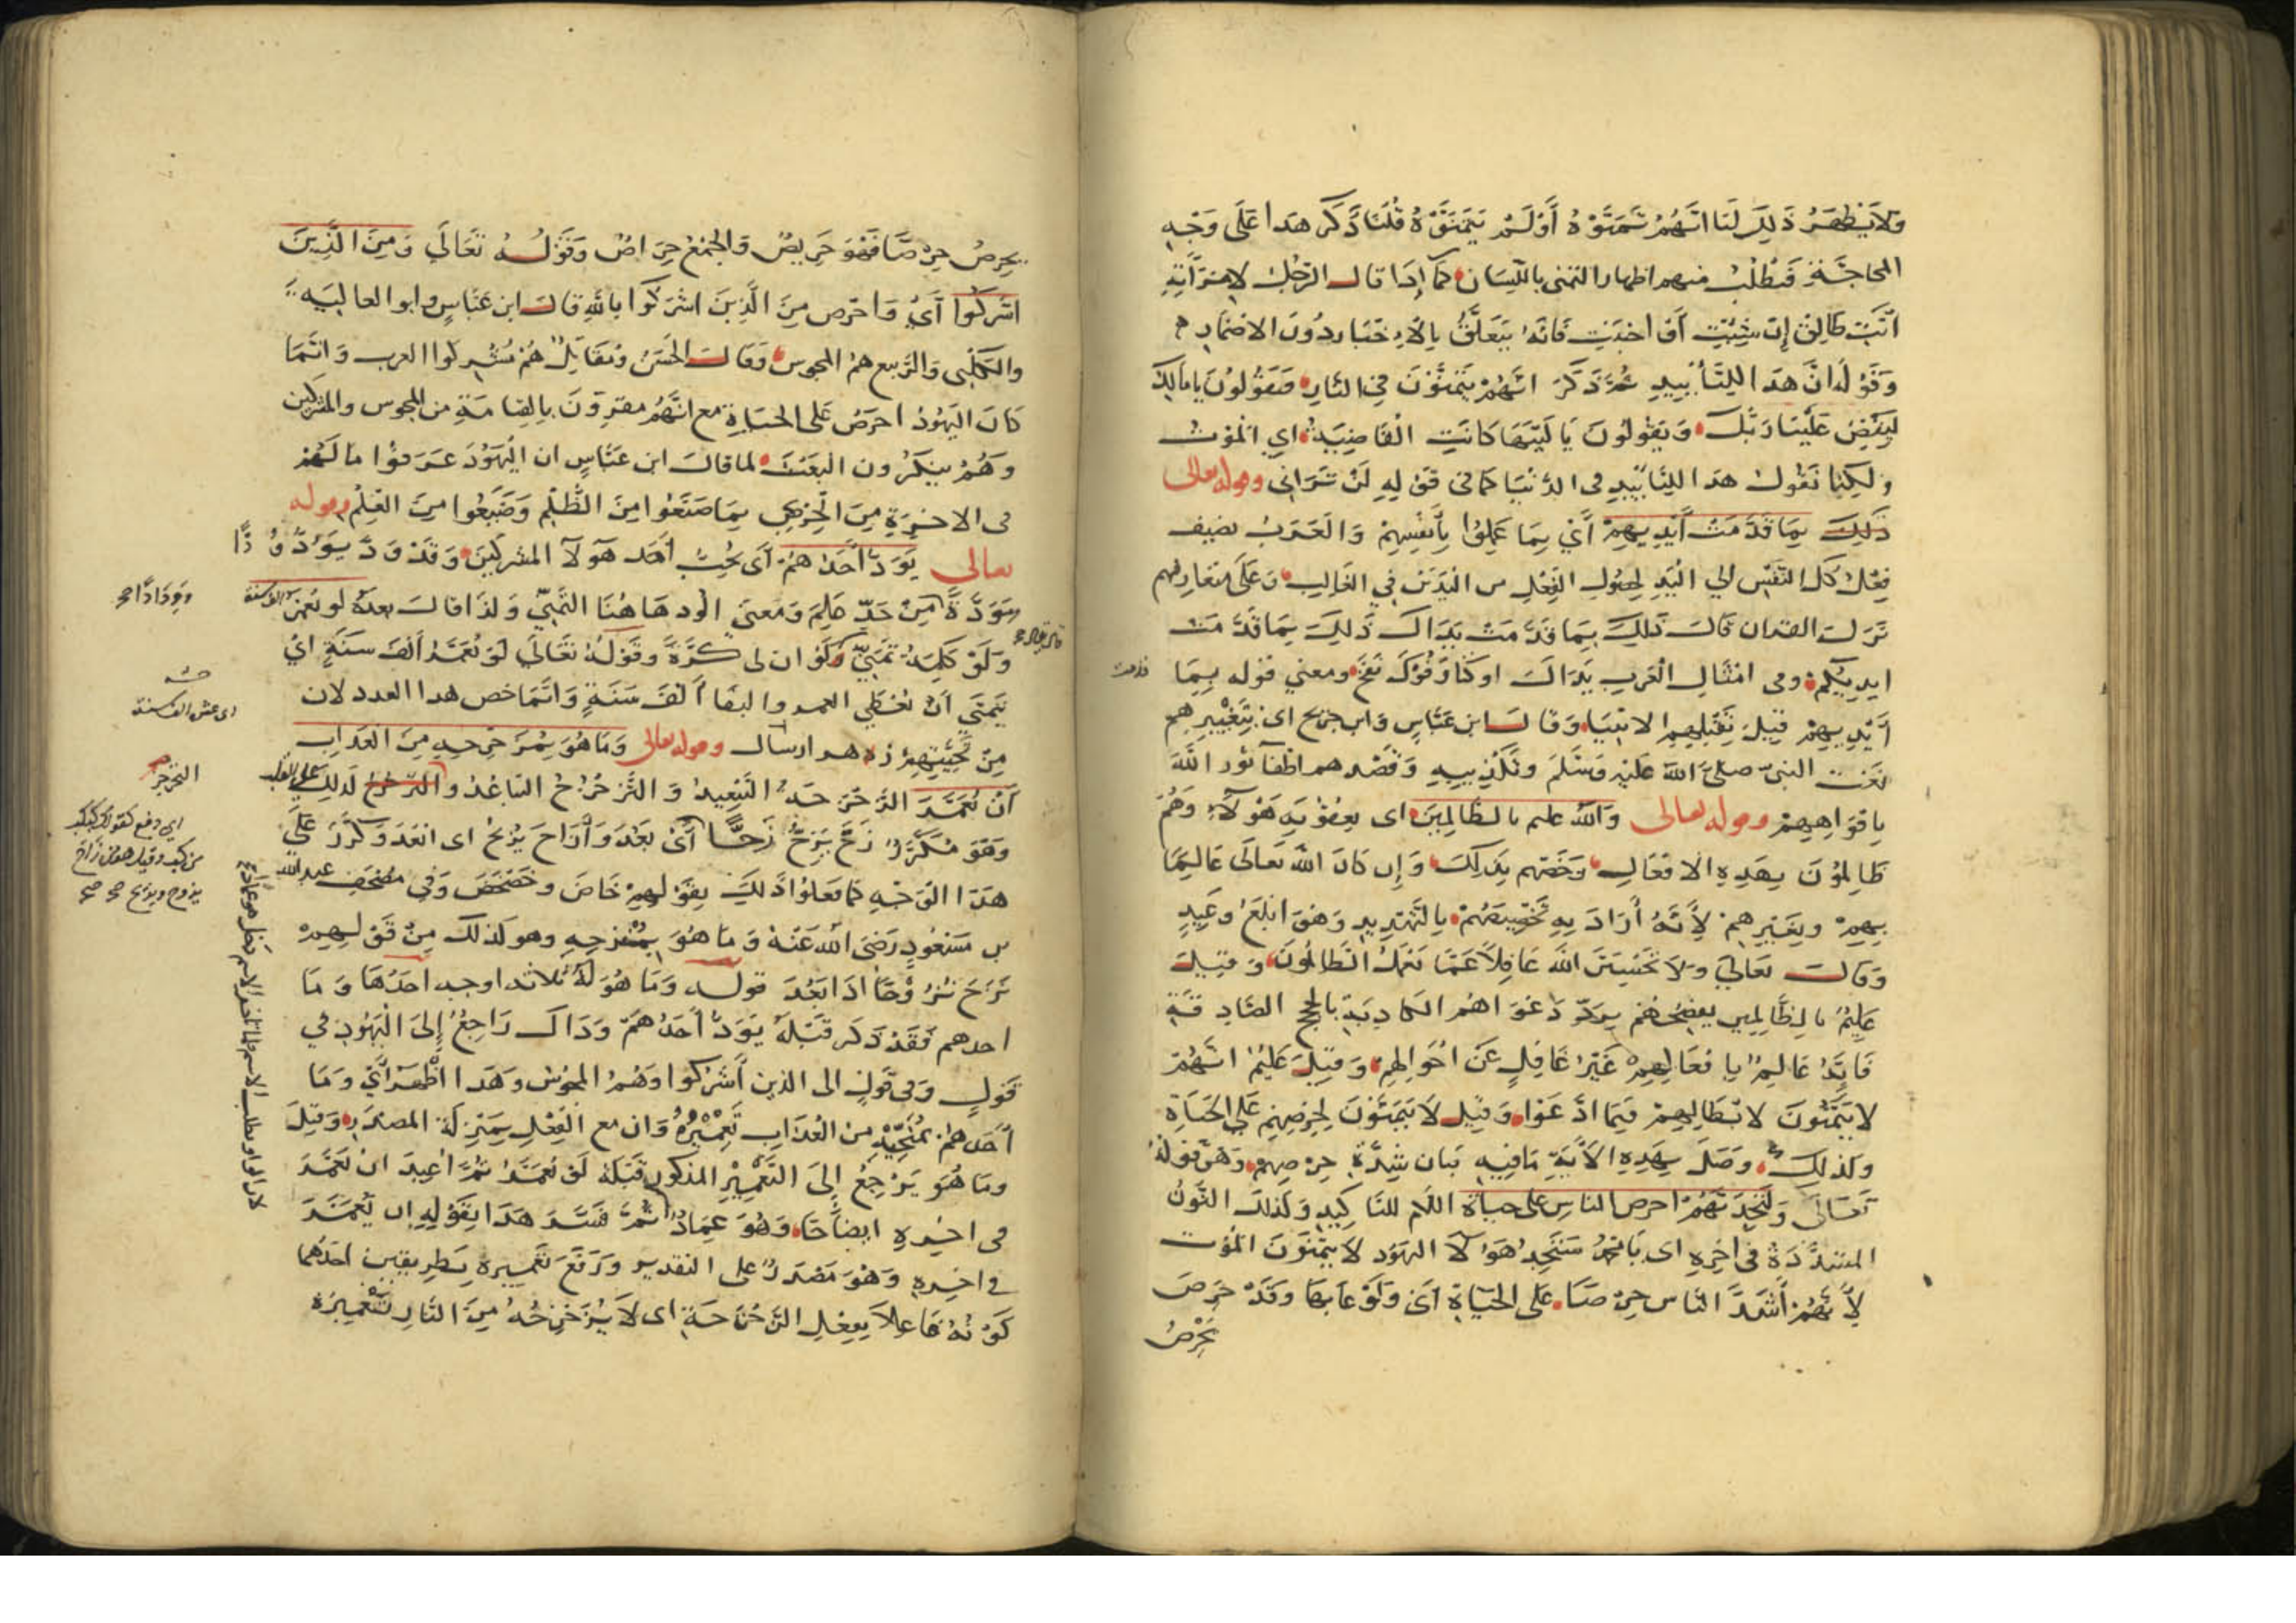 ولا يظهر ذلك لنا انهم تمنوه أو لم يتمنوه قلنا ذكر هذا على وجه
المحاجة فيطلب منهم اظهار التمني باللسان كما إذا قال الرجل لامرأته
أنت طالق إن شئت أو احببت فانه يتعلق بالاخبار دون الاضمار
وقوله ان هذا للتأبيد ثم ذكر انهم يتمنون في النار فيقولون يا مالك
ليقض علينا ربك ويقولون يا ليتها كانت القاضية اي الموت
ولكنا نقول هذا للتأبيد في الدنيا كما في قوله لن تراني وقوله تعالى
ذلك بما قدمت أيديهم أي بما عملوا بأنفسهم والعرب تضيف
فعل كل النفس الي اليد لحصول الفعل من اليدين في الغالب وعلى متعارفهم
نزل القران قال ذلك بما قدمت يداك ذلك بما قدمت
ايديكم وفي امثال العرب يداك اوكتا وفوك نفخ ومعني قوله بما
قدمت
أيديهم قيل بقتلهم الانبيا وقال ابن عباس وابن جريج اى بتغييرهم
نعت النبي صلى الله عليه وسلم وتكذيبه وقصدهم اطفآ نور الله
بافواههم وقوله تعالى والله عليم بالظالمين اى بعقوبة هؤلاء وهم
ظالمون بهذه الافعال وخصهم بذلك وإن كان الله تعالى عالما
بهم وبغيرهم لأنه أراد به تخصيصهم بالتهديد وهو ابلغ وعيد
وقال تعالى ولا تحسبن الله غافلا عما يعمل الظالمون وقيل
عليم بالظالمين يفضحهم برد دعواهم الكاذبة بالحجج الصادقة
فانه عالم بافعالهم غير غافل عن احوالهم وقيل عليم انهم
لا يتمنون لابطالهم فيما ادعوا وقيل لا يتمنون لحرصهم على الحياة
ولذلك وصل بهذه الآية ما فيه بيان شدة حرصهم وهو قوله
تعالى ولتجدنهم احرص الناس على حياة اللام للتاكيد وكذلك النون
المشددة في آخره اى يا محمد ستجد هؤلآ اليهود لا يتمنون الموت
لأنهم أشد الناس حرصا على الحياة أى ولوعا بها وقد حرص
يحرص
يحرص حرصا فهو حريص والجمع حراص وقوله تعالي ومن الذين
اشركوا أي واحرص من الذين اشركوا بالله قال ابن عباس وابو العالية
والكلبي والربيع هم المجوس وقال الحسن ومقاتل هم مشركوا العرب وانما
كان اليهود احرص على الحياة مع انهم مقرون بالقيامة من المجوس والمشركين
وهم ينكرون البعث لما قال ابن عباس ان اليهود عرفوا ما لهم
فى الاخرة من الخزي بما صنعوا من الظلم وضيعوا من العلم وقوله
تعالى يود أحدهم أى يحب أحد هؤلآ المشركين وقد ود يود ودا
ومودة من حد علم ومعنى الود هاهنا التمني ولذا قال بعده لو يعمر الف سنة
وودادا صح
ولو كلمة تمني ولو ان لى كرة وقوله تعالى لو يعمر ألف سنة اي
يتمني أن يعطي العمر والبقا ألف سنة وانما خص هذا العدد لان
اى عش الف سنة
من تحيتهم زه هزار سال وقوله تعالى وما هو بمزحزحه من العذاب
أن يعمر الزحزحة التبعيد والتزحزح التباعد
وهو مكرر زح يزح زحا أى بعد وأزاح يزيح اى ابعد وكرر على
هذا الوجه كما فعلوا ذلك بقولهم خاض وخضخض وفى مصحف عبد الله
بن مسعود رضى الله عنه وما هو بمنزحه وهو كذلك من قولهم
نزح نزوحا اذا بعد قوله وما هو له ثلاثه اوجه احدها وما
احدهم فقد ذكر قبله يود أحدهم وذاك راجع إلى اليهود في
قول وفى قول الى الذين أشركوا وهم المجوس وهذا اظهر أي وما
أحدهم بمنجيه من العذاب تعميره وان مع الفعل بمنزلة المصدر وقيل
وما هو يرجع إلى التعمير المذكور قبله لو يعمر ثم اعيد ان يعمر
فى اخره ايضاحا وهو عماد ثم فسر هذا بقوله ان يعمر
في اخره وهو مصدر على التقدير ورفع تعميره بطريقين احدهما
كونه فاعلا بفعل الزحزحة اى لا يزحزحه من النار تعميره